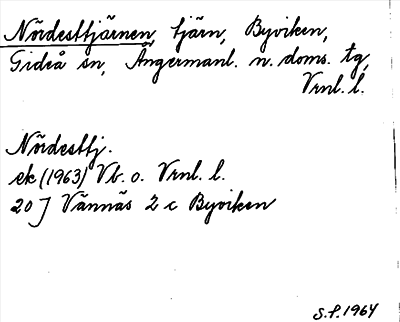 Nördesttjärnen, tjärn, Byviken,
Gideå sn, Ångermanl. n. doms. tg,
Vrnl. l.
Nördesttj.
ek (1963) Vb. o. Vrnl. l.
20 J Vännäs 2 c Byviken
S.F. 1964